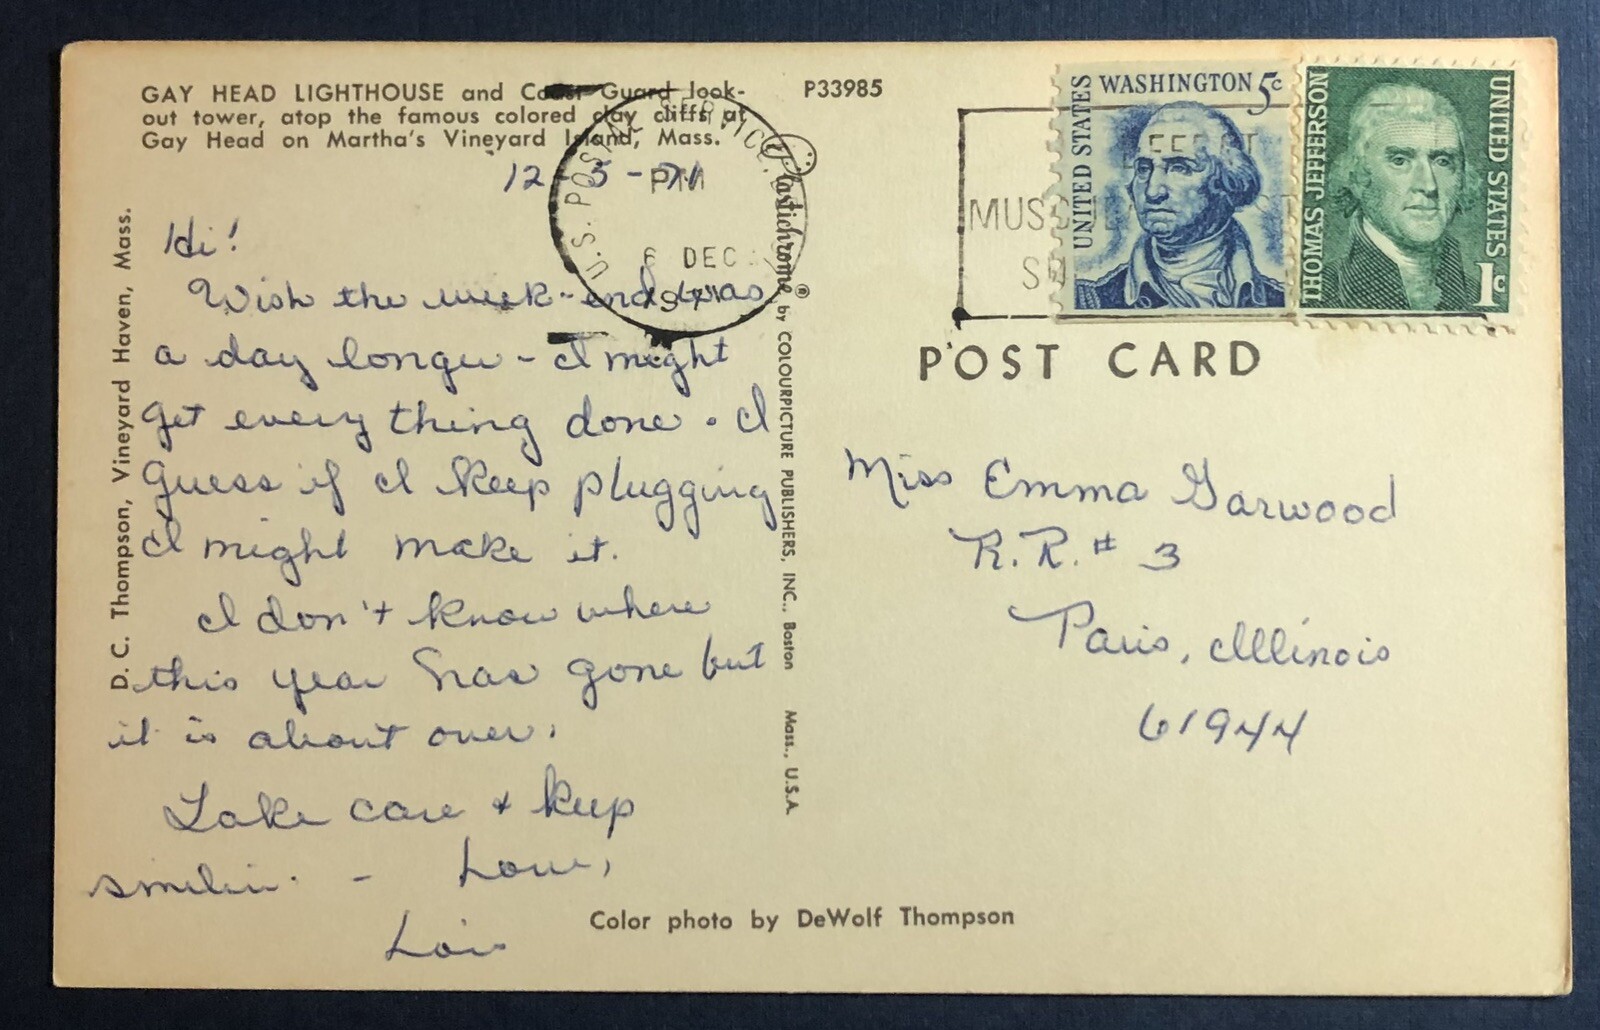 GAY HEAD LIGHTHOUSE and Coast Guard look-
out tower, atop the famous colored clay cliffs at
Gay Head on Martha's Vineyard Island, Mass.
P33985
12-5-71
Hi!
Wish the week-end was
a day longer - I might
get every thing done. I
guess if I keep plugging
I might make it.
I don't know where
this year has gone but
it is about over.
Take care & keep
smilin. - Love,
Lois
D. C. Thompson, Vineyard Haven, Mass.
U.S. POSTAL SERVICE
PM
6 DEC
1971
Plastichrome® by COLOURPICTURE PUBLISHERS, INC., Boston Mass., U.S.A.
MUS
UNITED STATES
WASHINGTON 5c
THOMAS JEFFERSON
UNITED STATES
1c
POST CARD
Miss Emma Garwood
R.R. # 3
Paris, Illinois
61944
Color photo by DeWolf Thompson